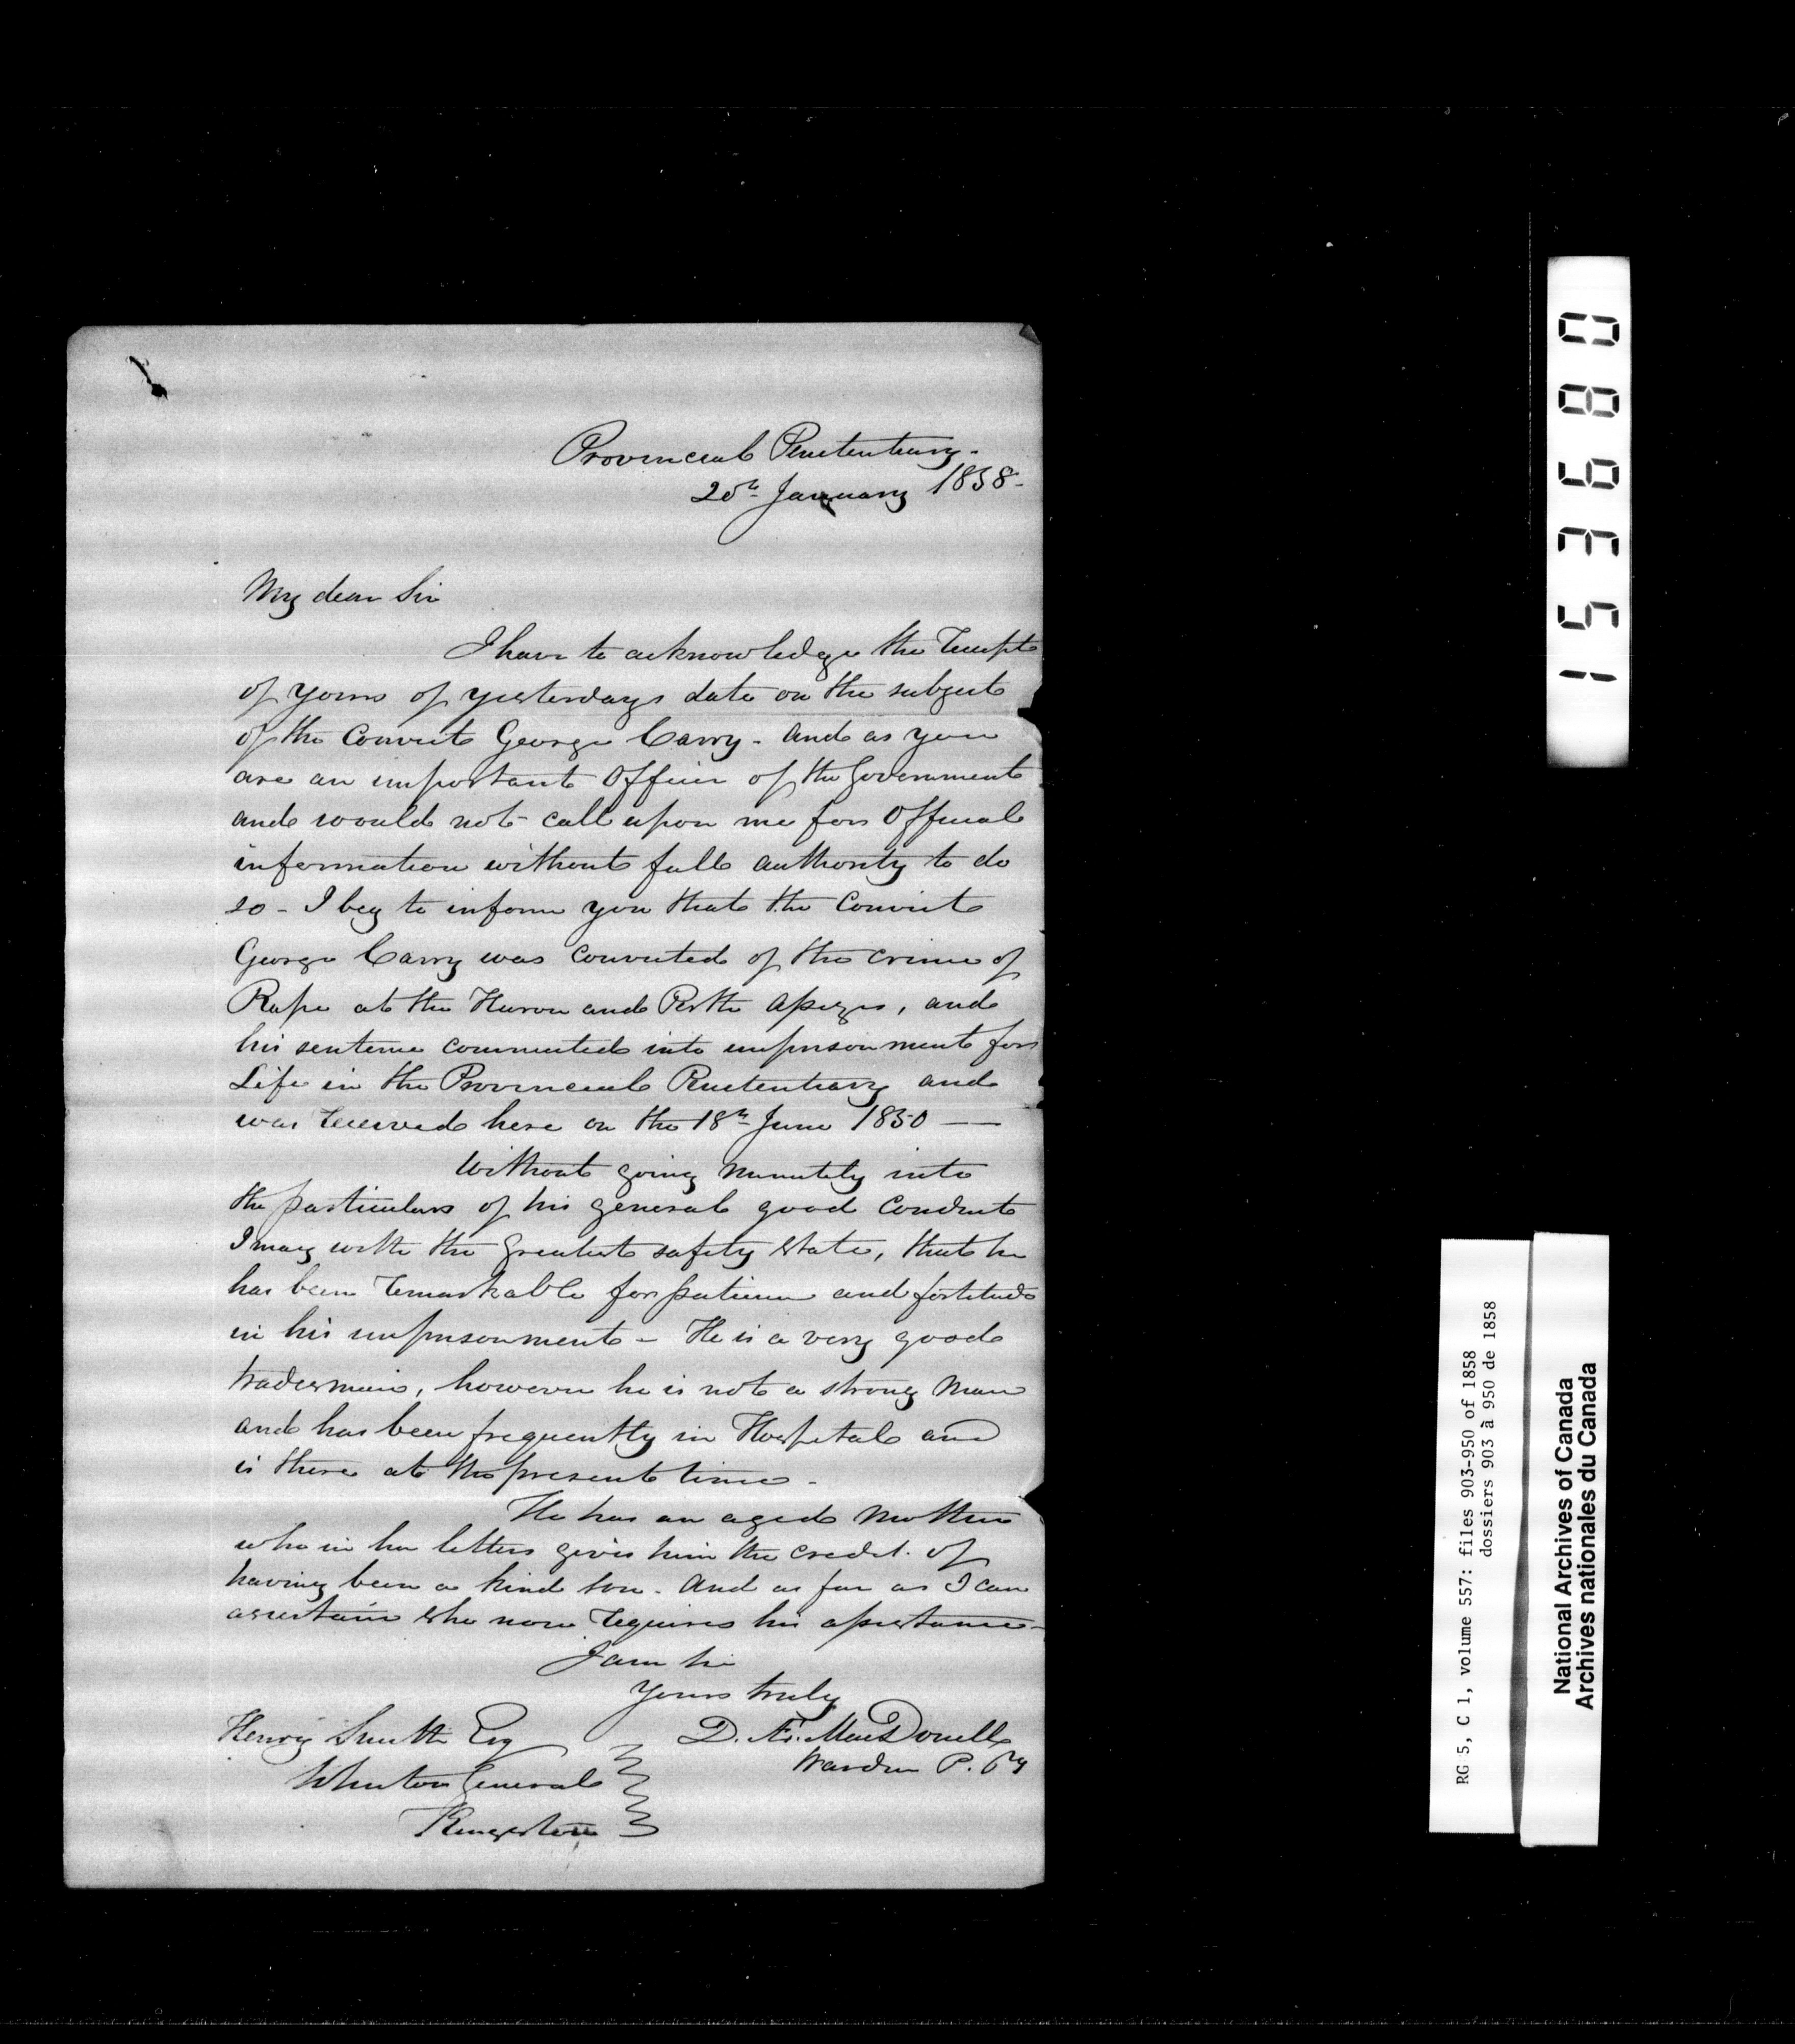 Provincial Penitentiary.
20th January 1858-
My dear Sir
I have to acknowledge the receipt
of yours of yesterdays date on the subject
of the Convict George Carry - and as you
are an important Officer of the Government
and would not call upon me for Official
information without full authority to do
so - I beg to inform you that the Convict
George Carry was convicted of the crime of
Rape at the Huron and Perth Assizes, and
his sentence commuted into imprisonment for
Life in the Provincial Penitentiary and
was received here on the 18th June 1850 —
Without going minutely into
the particulars of his general good Conduct
I may with the greatest safety state, that he
has been remarkable for patience and fortitude
in his imprisonment - He is a very good
tradesman, however he is not a strong man
and has been frequently in Hospital and
is there at the present time -
He has an aged Mother
who in her letters gives him the credit of
having been a kind son - and as far as I can
ascertain she now requires his assistance -
I am Sir
Yours truly
D. Æ. MacDonell
Warden P. Py
Henry Smith Esq
Solicitor General
Kingston
153680
RG 5, C 1, volume 557: files 903-950 of 1858
dossiers 903 à 950 de 1858
National Archives of Canada
Archives nationales du Canada